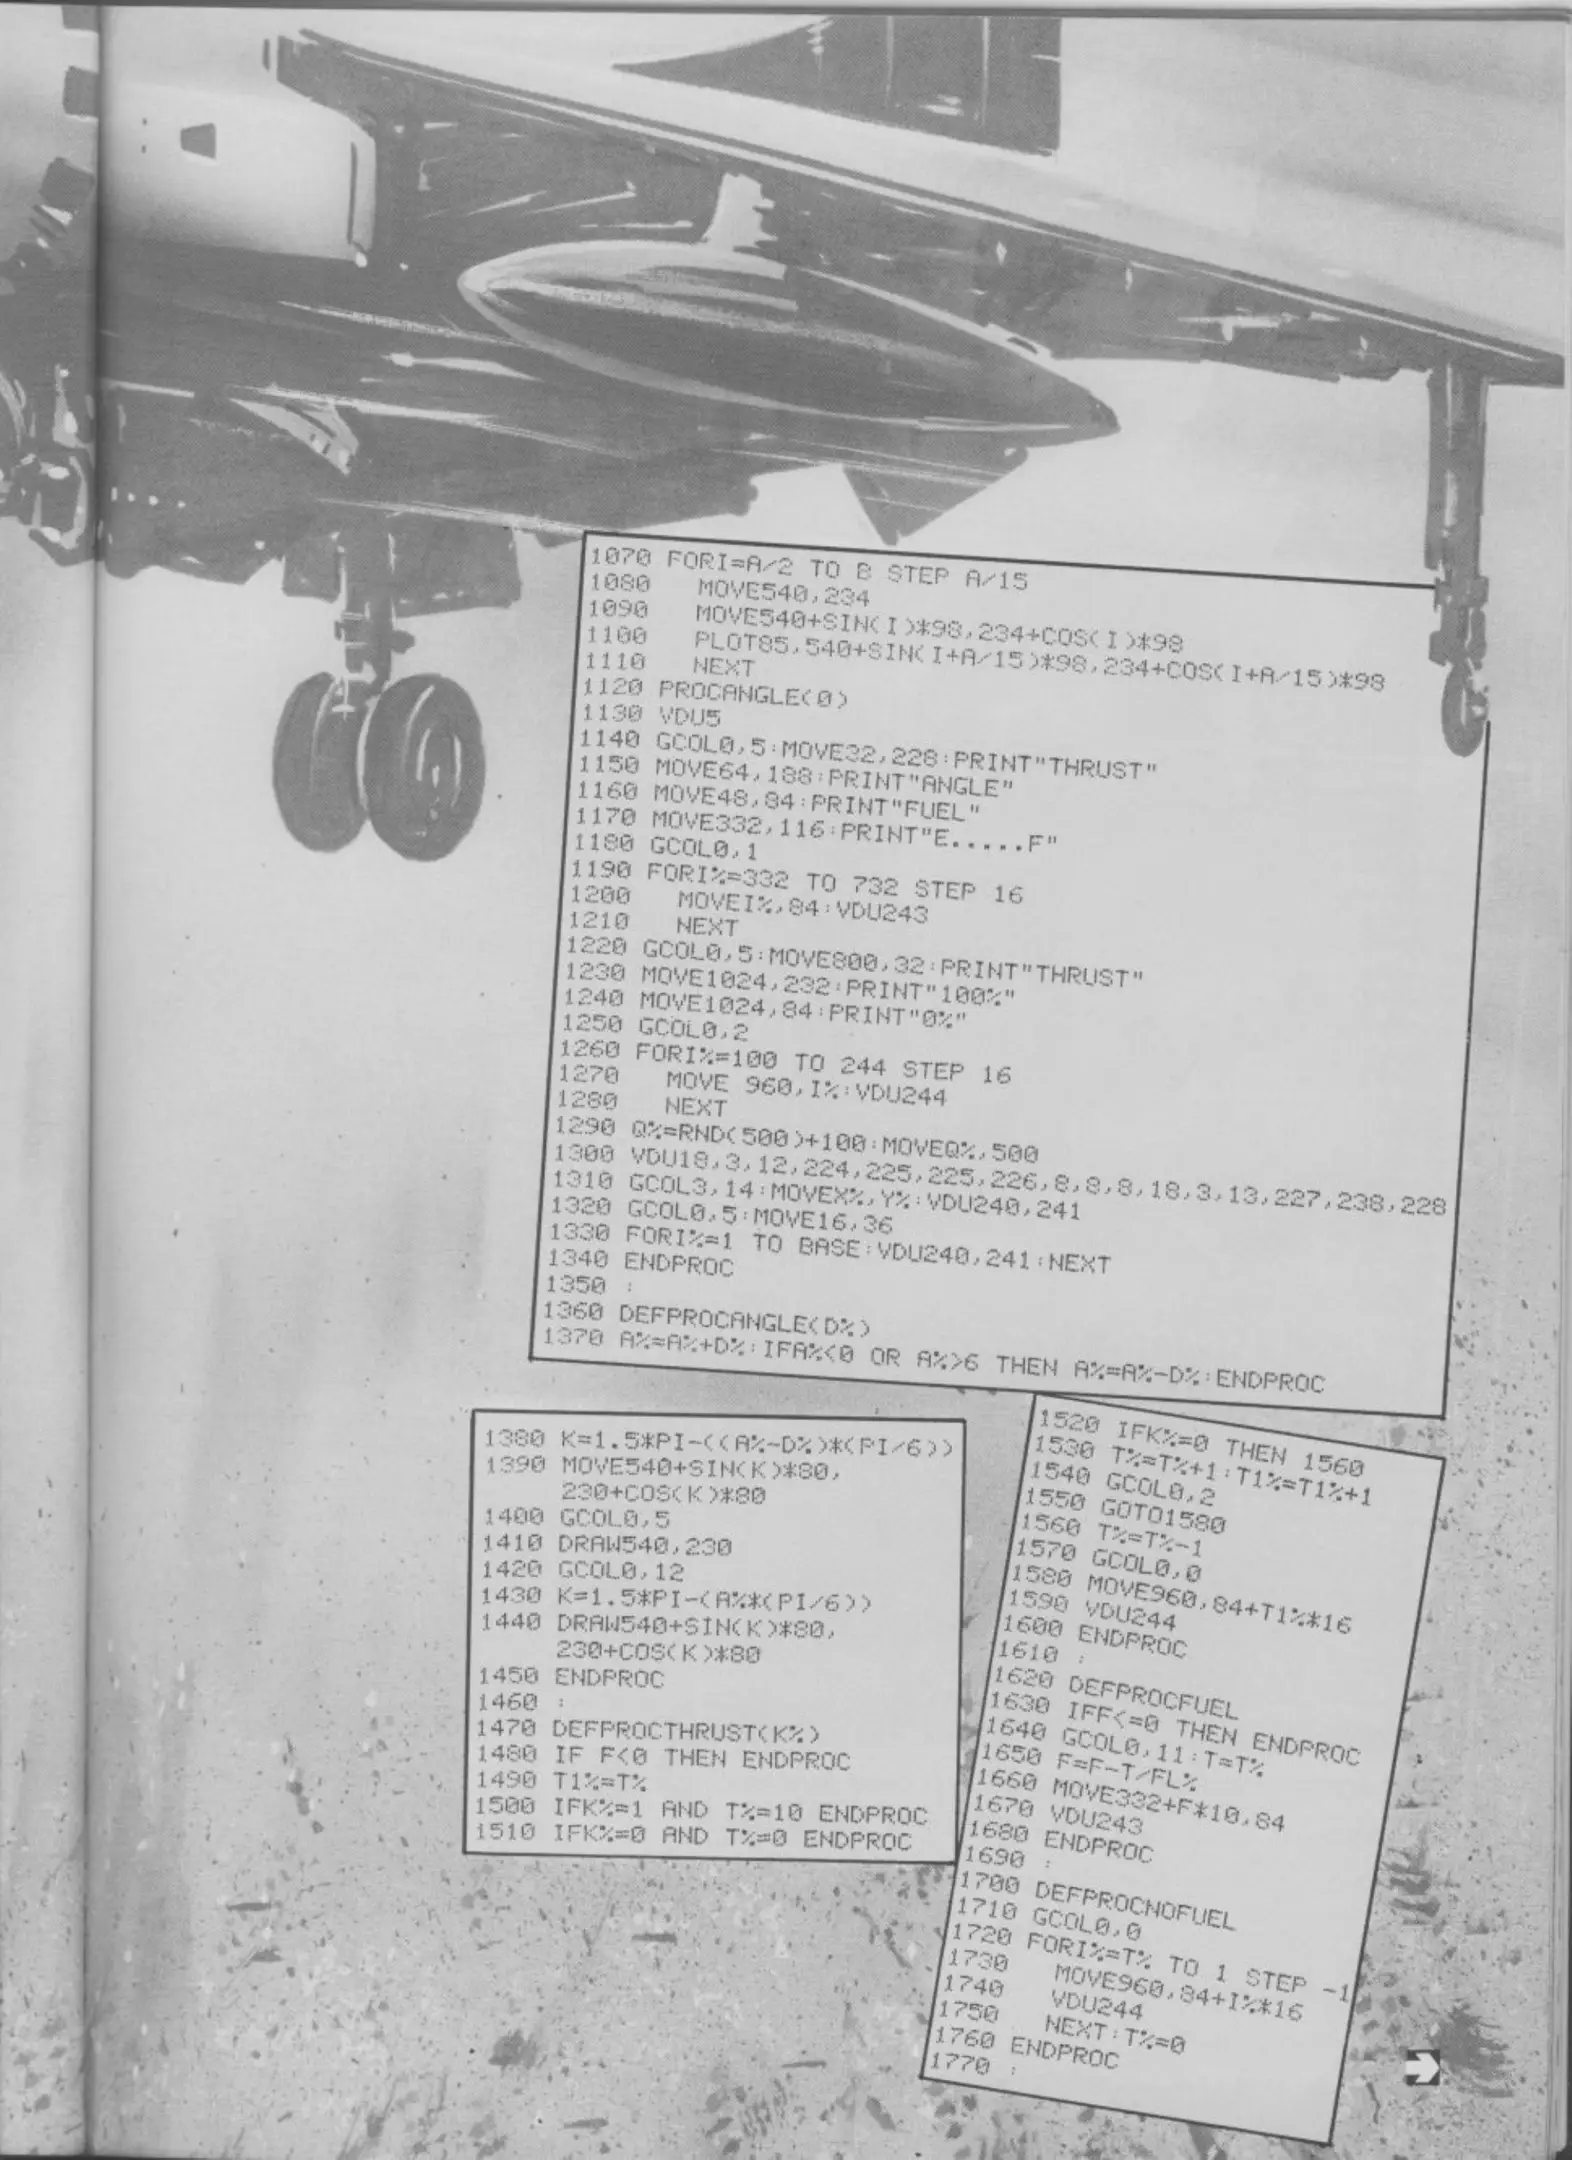 1070 FORI=A/2 TO B STEP A/15
1080   MOVE540,234
1090   MOVE540+SIN(I)*98,234+COS(I)*98
1100   PLOT85,540+SIN(I+A/15)*98,234+COS(I+A/15)*98
1110   NEXT
1120 PROCANGLE(0)
1130 VDU5
1140 GCOL0,5:MOVE32,228:PRINT"THRUST"
1150 MOVE64,188:PRINT"ANGLE"
1160 MOVE48,84:PRINT"FUEL"
1170 MOVE332,116:PRINT"E.....F"
1180 GCOL0,1
1190 FORI%=332 TO 732 STEP 16
1200   MOVEI%,84:VDU243
1210   NEXT
1220 GCOL0,5:MOVE800,32:PRINT"THRUST"
1230 MOVE1024,232:PRINT"100%"
1240 MOVE1024,84:PRINT"0%"
1250 GCOL0,2
1260 FORI%=100 TO 244 STEP 16
1270   MOVE 960,I%:VDU244
1280   NEXT
1290 Q%=RND(500)+100:MOVEQ%,500
1300 VDU18,3,12,224,225,225,226,8,8,8,18,3,13,227,238,228
1310 GCOL3,14:MOVEX%,Y%:VDU240,241
1320 GCOL0,5:MOVE16,36
1330 FORI%=1 TO BASE:VDU240,241:NEXT
1340 ENDPROC
1350 :
1360 DEFPROCANGLE(D%)
1370 A%=A%+D%:IFA%<0 OR A%>6 THEN A%=A%-D%:ENDPROC
1380 K=1.5*PI-((A%-D%)*(PI/6))
1390 MOVE540+SIN(K)*80,
230+COS(K)*80
1400 GCOL0,5
1410 DRAW540,230
1420 GCOL0,12
1430 K=1.5*PI-(A%*(PI/6))
1440 DRAW540+SIN(K)*80,
230+COS(K)*80
1450 ENDPROC
1460 :
1470 DEFPROCTHRUST(K%)
1480 IF F<0 THEN ENDPROC
1490 T1%=T%
1500 IFK%=1 AND T%=10 ENDPROC
1510 IFK%=0 AND T%=0 ENDPROC
1520 IFK%=0 THEN 1560
1530 T%=T%+1:T1%=T1%+1
1540 GCOL0,2
1550 GOTO1580
1560 T%=T%-1
1570 GCOL0,0
1580 MOVE960,84+T1%*16
1590 VDU244
1600 ENDPROC
1610 :
1620 DEFPROCFUEL
1630 IFF<=0 THEN ENDPROC
1640 GCOL0,11:T=T%
1650 F=F-T/FL%
1660 MOVE332+F*10,84
1670 VDU243
1680 ENDPROC
1690 :
1700 DEFPROCNOFUEL
1710 GCOL0,0
1720 FORI%=T% TO 1 STEP -1
1730   MOVE960,84+I%*16
1740   VDU244
1750   NEXT:T%=0
1760 ENDPROC
1770 :